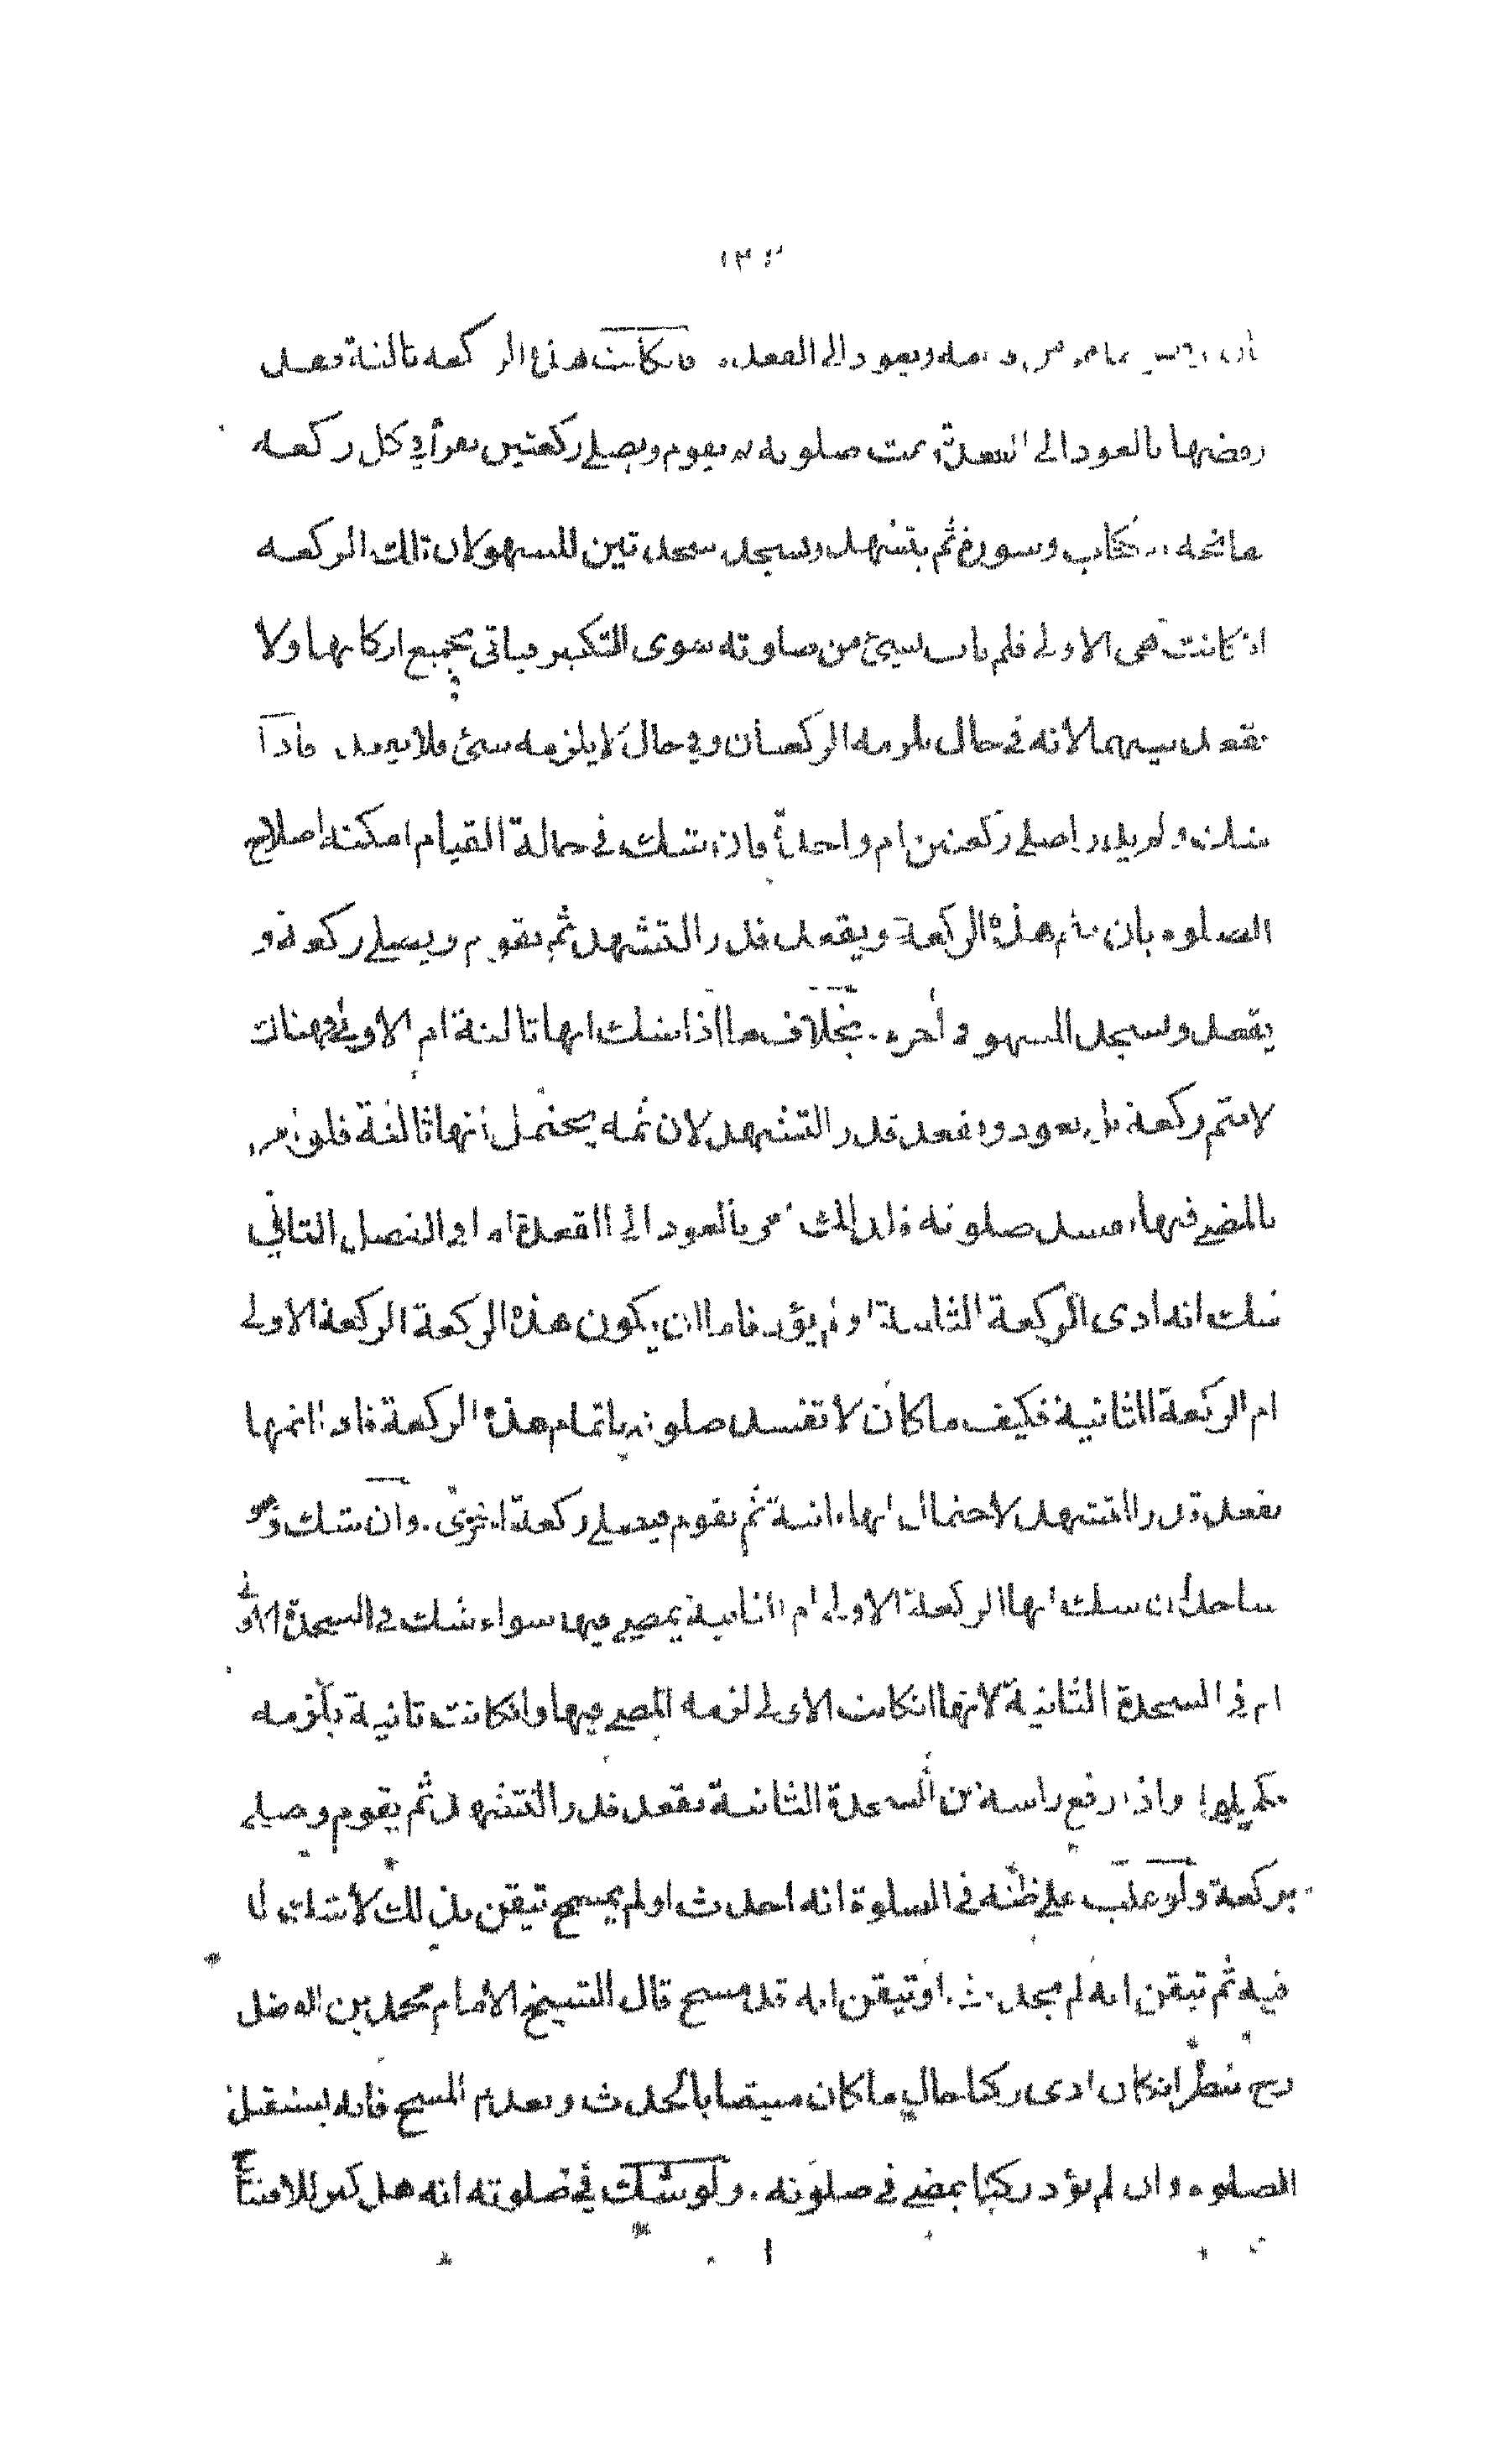 ويعود الى القعدة فان كانت هذه الركعة ثالثة فعد
رفضها بالعود الى القعدة تمت صلوته ثم يقوم ويصلي ركعتين يقرأ في كل ركعة
فاتحة الكتاب وسورة ثم يتشهد ويسجد سجدتين للسهو لان تلك الركعة
ان كانت هي الاولى فلم يات بشيئ من صلوته سوى التكبير فياتي بجميع اركانها ولا
يقعد بينهما لانه في حال يلزمه الركعتان وفي حال لا يلزمه شيئ فلا يقعد فاذا
شك ولم يدر اصلى ركعتين ام واحدة فان شك في حالة القيام امكنه اصلاح
الصلوة بان يتم هذه الركعة ويقعد قدر التشهد ثم يقوم ويصلي ركعة و
يقعد ويسجد للسهو في اخره بخلاف ما اذا شك انها ثالثة ام الاولى فهناك
لا يتم ركعة بل يعود ويقعد قدر التشهد لان ثمه يحتمل انها ثالثة فلو
بالمضي فيها تفسد صلوته فلذلك يؤمر بالعود الى القعدة اما في الفصل الثاني
شك انه ادى الركعة الثانية او لم يؤد فاما ان يكون هذه الركعة الركعة الاولى
ام الركعة الثانية فكيف ما كان لا تفسد صلوته باتمام هذه الركعة فاذا اتمها
يقعد قدر التشهد لاحتمال انها ثانية ثم يقوم فيصلي ركعة اخرى وان شك وهو
ساجد ان شك انها الركعة الاولى ام الثانية يمضي فيها سواء شك في السجدة الاولى
ام في السجدة الثانية لانها ان كانت الاولى لزمه المضي فيها وان كانت ثانية يلزمه
تكميلها واذا رفع راسه من السجدة الثانية يقعد قدر التشهد ثم يقوم وصلي
بركعة ولو غلب على ظنه في الصلوة انه احدث او لم يمسح تيقن بذلك لا شك له
فيه ثم تيقن انه لم يحدث او تيقن انه قد مسح قال الشيخ الامام محمد بن الفضل
رح ينظر ان كان ادى ركنا حال ما كان متيقنا بالحدث وبعدم المسح فانه يستقبل
الصلوة وان لم يؤد ركنا يمضي في صلوته ولو شك في صلوته انه هل كبر للافتتاح